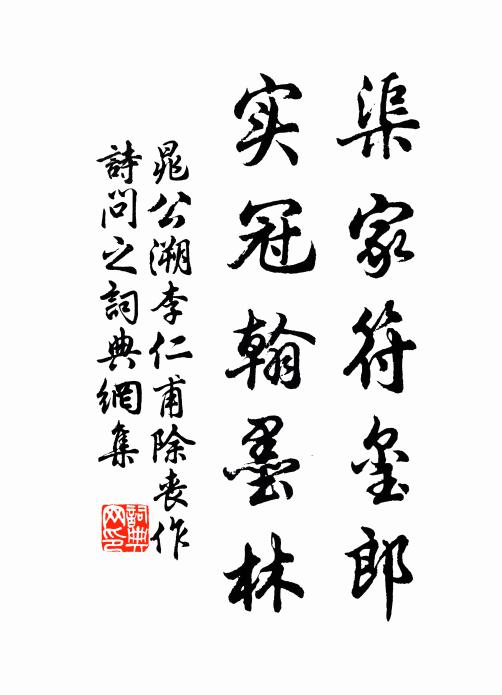 渠家符玺郎
实冠翰墨林
晁公溯李仁甫除丧作
詩問之詞典網集
詞典网印